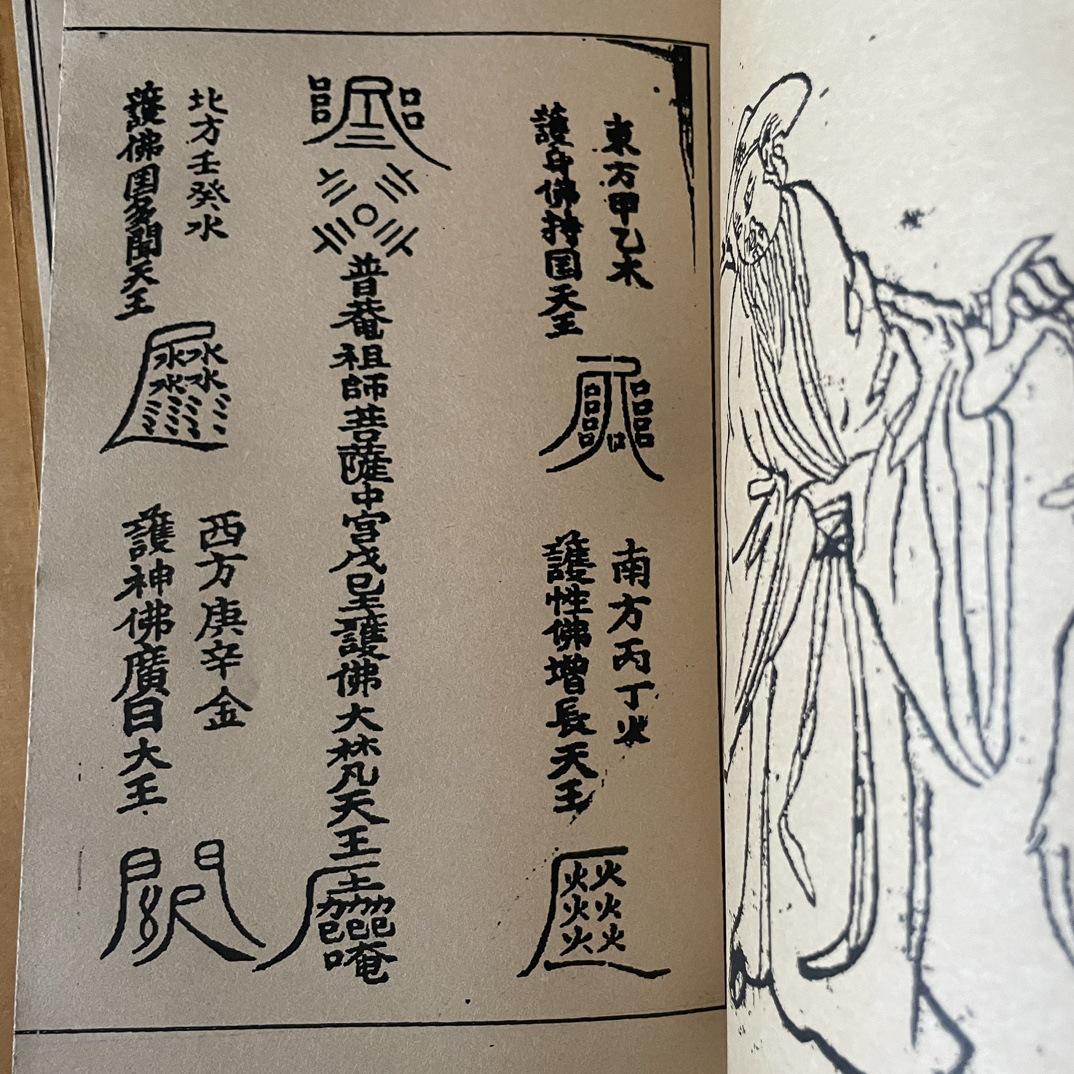 東方甲乙木
護身佛持国天王
南方丙丁火
護性佛增長天王
火火火火火火
普菴祖師菩薩中宮戊己土護佛大梵天王
唵
北方壬癸水
護佛国多聞天王
水水水水
西方庚辛金
護神佛廣目大王